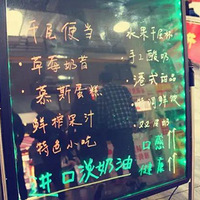 千层便当
草莓奶昔
慕斯蛋糕
鲜榨果汁
特色小吃
水果千层
手工酸奶
港式甜品
双皮奶
进口淡奶油
口感
健康